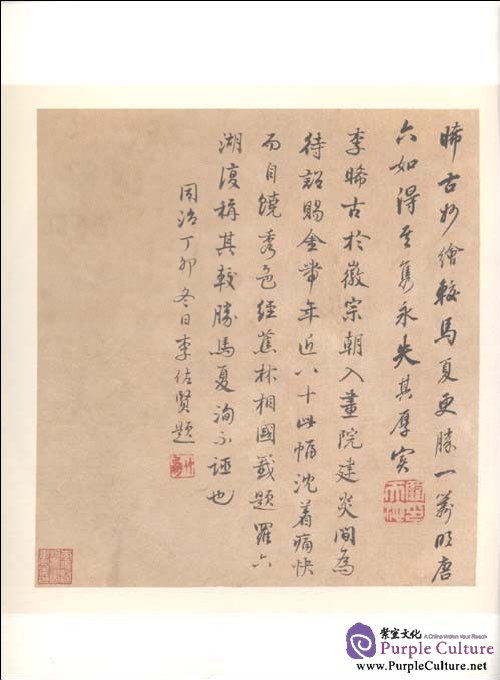 晞古妙繪較馬夏更勝一籌明唐
六如得其雋永失其厚實
李晞古於徽宗朝入畫院建炎間為
待詔賜金帶年近八十此幅沈着痛快
而自饒秀色經蕉林相國籤題羅六
湖復稱其較勝馬夏洵不誣也
同治丁卯冬日李佐賢題
紫室文化 A China Within Your Reach
Purple Culture
www.PurpleCulture.net